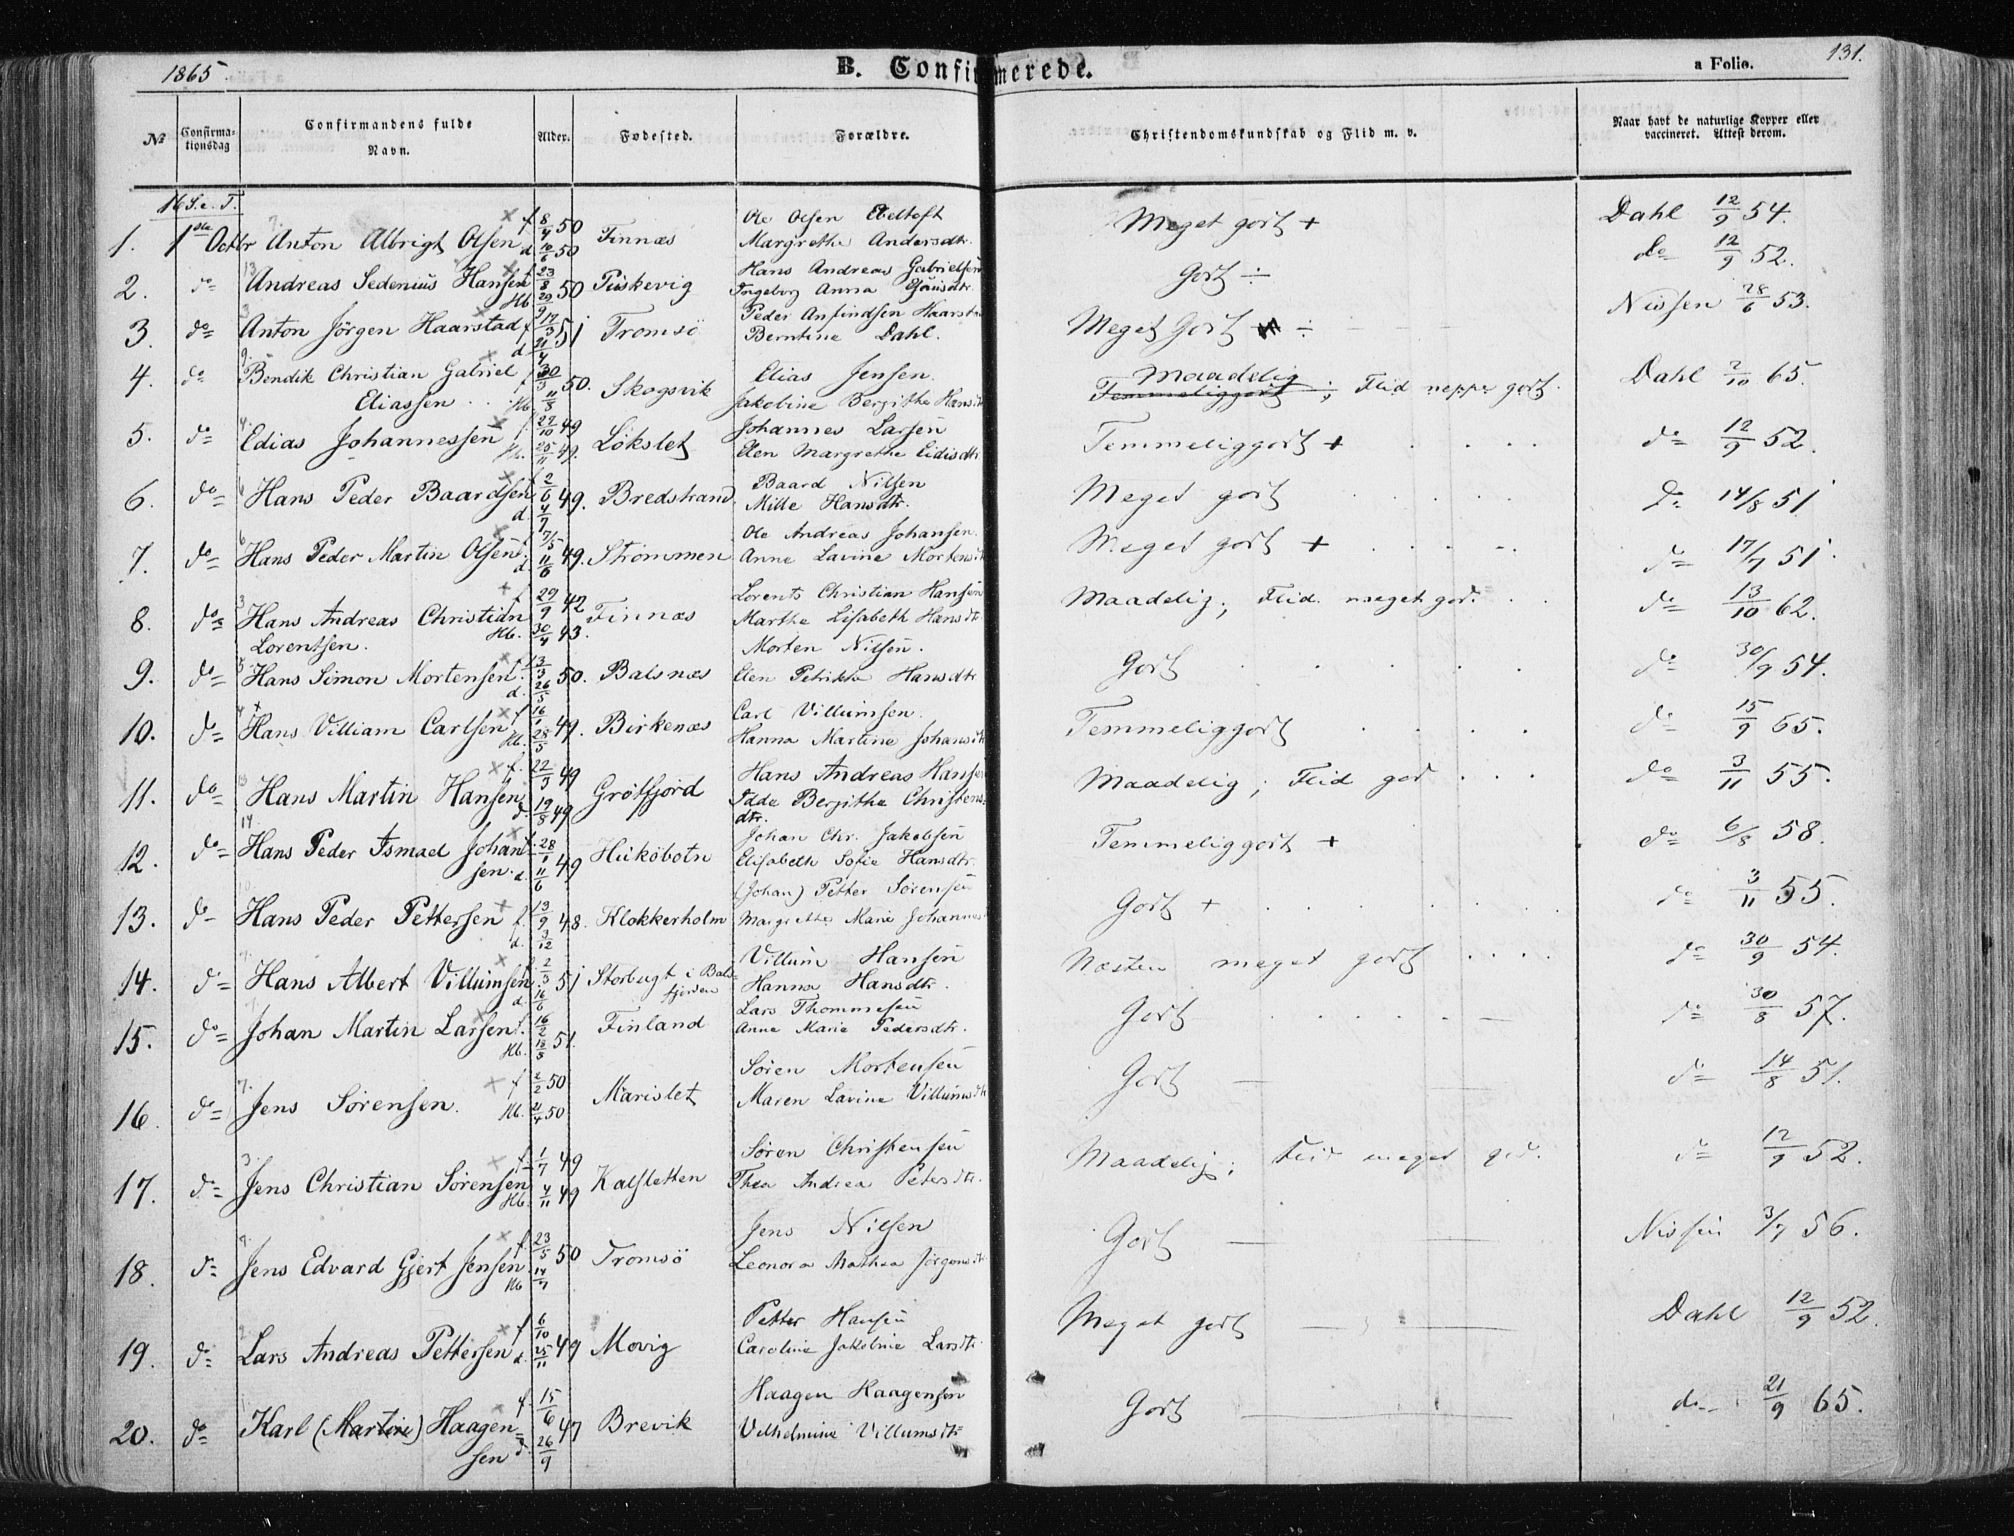 1865. B. Confirmerede. a Folio. 131.
№ Confirma-tionsdag Confirmandens fulde Navn. Alder. Fødested. Forældre. Christendomskundskab og Flid m. v. Naar havt de naturlige Kopper eller vaccineret. Attest derom.
16 S. e. T.
1. 1ste Octbr Anton Albrigt Olsen f 8/4 50 d 16/6 50 Finnæs Ole Olsen Ebeltoft Margrethe Andersdtr. Meget godt + Dahl 12/9 54.
2. do Andreas Sedenius Hansen f 23/8 Hb. 29/9 50 Hans Andreas Gabrielsen Ingeborg Anna Godt ÷ do 12/9 52.
3. do Anton Jörgen Haarstad f 17/3 d. 21/4 51 Tromsö Peder Anfindsen Haarstad Berntine Dahl. Meget Godt ÷ Nissen 28/6 53.
4. do Bendik Christian Gabriel Eliassen f 30/3 Hb. 11/8 50. Skogsvik Elias Jensen. Jakobine Bergithe Hansdtr Maadelig Temmeliggodt; Flid neppe godt. Dahl 2/10 65.
5. do Edias Johannessen f. 22/10 49 Hb. 25/11 49. Lökslet Johannes Larsen Elen Margrethe Eidisdtr Temmeliggodt + do 12/9 52.
6. do Hans Peder Baardsen f 2/6 d. 4/7 49. Bredstrand. Baard Nilsen Milde Hansdtr. Meget godt do 14/8 51
7. do Hans Peder Martin Olsen f. 7/5 d. 11/6 49. Strömmen Ole Andreas Johansen. Anne Lavine Mortensdtr Meget godt + do 17/7 51.
8. do Hans Andreas Christian Lorentsen. f 29/9 42 Hb. 30/4 43. Finnæs Lorents Christian Hansen Marthe Lisabeth Hansdtr. Maadelig; Flid meget god. do 13/10 62.
9. do Hans Simon Mortensen f 13/3 d. 26/5 50. Balsnæs Morten Nilsen. Elen Petrikke Hansdtr Godt do 30/9 54.
10. do Hans Villiam Carlsen f 16/1 Hb. 28/5 49. Birkenæs Carl Villumsen. Hanna Martine Johansdtr Temmeliggodt do 15/9 65.
11. do Hans Martin Hansen f. 22/3 49 d. 19/8 49 Grötfjord Hans Andreas Hansen Idde Bergithe Christensdtr. Maadelig; Flid god do 3/11 55.
12. do Hans Peder Ismael Johansen. f. 28/1 d. 11/6 49 Johan Chr. Jakobsen Elisabeth Sofie Hansdtr. Temmeliggodt + do 6/8 58.
13. do Hans Peder Pettersen f. 13/9 d. 3/12 48. Klokkerholm (Johan) Petter Sörensen Margrethe Marie Johannesdtr Godt + do 3/11 55.
14. do Hans Albert Villumsen f 2/3 d. 16/6 51 Storbugt i Balsfjorden Villum Hansen Hanna Hansdtr. Næsten meget godt do 30/9 54.
15. do Johan Martin Larsen f. 16/2 Hb. 18/5 51. Finland Lars Thommesen Anne Marie Pedersdtr. Godt do 30/8 57.
16. do Jens Sörensen. f 2/2 50 Hb. 21/4 50 Marislet Sören Mortensen Maren Lavine Villumsdtr Godt do 14/8 51.
17. do Jens Christian Sörensen f 1/7 49 Hb. 4/11 49 Kalsletten Sören Christensen Thea Andrea Petersdtr. Maadelig; Flid meget god. do 12/9 52.
18. do Jens Edvard Gjert Jensen f 23/5 Hb 14/7 50 Tromsö Jens Nilsen Leonora Mathea Jörgensdtr Godt Nissen 3/7 56.
19. do Lars Andreas Pettersen f 6/10 d. 25/11 49 Movig Petter Hansen Caroline Jakobine Larsdtr Meget godt Dahl 12/9 52.
20. do Karl (Martin) Haagensen f. 15/6 d. 26/9 47 Brevik Haagen Haagensen Vilhelmine Villumsdtr Godt do 21/9 65.